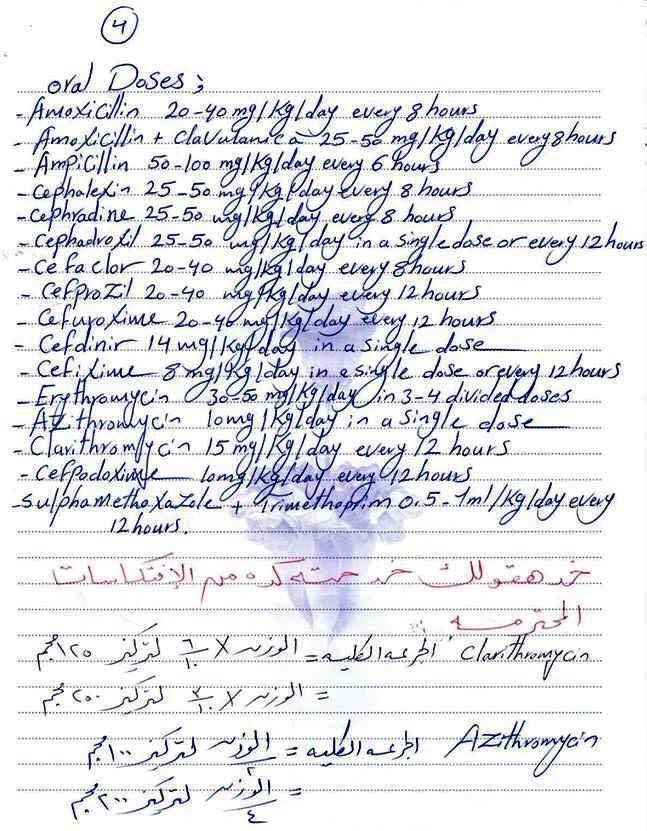 4
oral Doses ;
- Amoxicillin 20-40 mg/kg/day every 8 hours
- Amoxicillin + clavulanic a 25-50 mg/kg/day every 8 hours
- Ampicillin 50-100 mg/kg/day every 6 hours
- cephalexin 25-50 mg/kg/day every 8 hours
- cephradine 25-50 mg/kg/day every 8 hours
- cephadroxil 25-50 mg/kg/day in a single dose or every 12 hours
- cefaclor 20-40 mg/kg/day every 8 hours
- cefprozil 20-40 mg/kg/day every 12 hours
- cefuroxime 20-40 mg/kg/day every 12 hours
- cefdinir 14 mg/kg/day in a single dose
- cefixime 8 mg/kg/day in a single dose or every 12 hours
- Erythromycin 30-50 mg/kg/day in 3-4 divided doses
- Azithromycin 10mg/kg/day in a single dose
- Clarithromycin 15 mg/kg/day every 12 hours
- cefpodoxime 10mg/kg/day every 12 hours
- sulphamethoxazole + Trimethoprim 0.5-1ml/kg/day every
12 hours.
خد هقولك خد حته كده من الإفتكاسات
المحترمه
Clarithromycin الجرعه الكليه = الوزن × ٦/١٠ لتركيز ١٢٥ مجم
= الوزن × ٣/١٠ لتركيز ٢٥٠ مجم
Azithromycin الجرعه الكليه = الوزن/٢ لتركيز ١٠٠ مجم
= الوزن/٤ لتركيز ٢٠٠ مجم